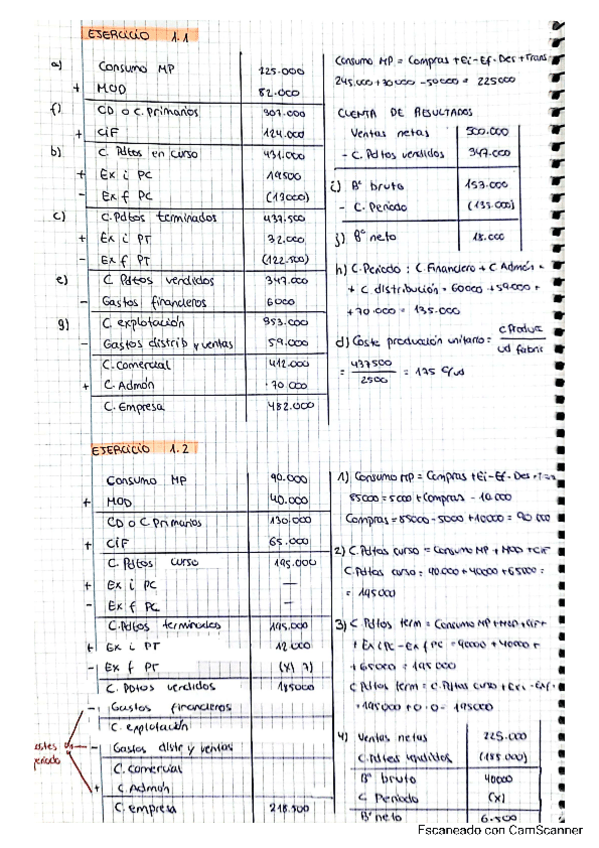 EJERCICIO 1.1
a) Consumo MP 225.000
+ MOD 82.000
f) CD o C. primarios 307.000
+ CIF 124.000
b) C. Pdtos en curso 431.000
+ Ex i PC 19500
- Ex f PC (13000)
c) C. Pdtos terminados 437.500
+ Ex i PT 32.000
- Ex f PT (122.500)
e) C Pdtos vendidos 347.000
- Gastos financieros 6000
g) C. explotación 353.000
- Gastos distrib y ventas 59.000
C. Comercial 412.000
+ C. Admón 70.000
C. Empresa 482.000
Consumo MP = Compras + Ei - Ef - Des + Trans
245.000 + 30000 - 50000 = 225000
CUENTA DE RESULTADOS
Ventas netas 500.000
- C. Pdtos vendidos 347.000
i) Bº bruto 153.000
- C. Periodo (135.000)
j) Bº neto 18.000
h) C. Periodo: C. Financiero + C Admón +
+ C distribución = 6000 + 59000 +
+ 70.000 = 135.000
d) Coste producción unitario = C Produc / ud fabric
= 437500 / 2500 = 175 €/ud
EJERCICIO 1.2
Consumo MP 90.000
+ MOD 40.000
CD o C. Primarios 130.000
+ CIF 65.000
C. Pdtos curso 195.000
+ Ex i PC —
- Ex f PC —
C. Pdtos terminados 195.000
+ Ex i PT 12000
- Ex f PT (X)
C. Pdtos vendidos 185000
- Gastos financieros
C. explotación
- Gastos distr y ventas
C. Comercial
+ C. Admón
C. empresa 218.500
1) Consumo MP = Compras + Ei - Ef - Des + Trans
85000 = 5000 + Compras - 10.000
Compras = 85000 - 5000 + 10000 = 90 000
2) C. Pdtos curso = Consumo MP + MOD + CIF
C. Pdtos curso: 90.000 + 40000 + 65000 =
= 195000
3) C Pdtos term = Consumo MP + MOD + CIF +
+ Ex i PC - Ex f PC = 90000 + 40000 +
+ 65000 = 195 000
C Pdtos term = C. Pdtos curso + Exi - Exf =
= 195000 + 0 - 0 = 195000
4) Ventas netas 225.000
C. Pdtos vendidos (185 000)
Bº bruto 40000
C Periodo (X)
Bº neto 6.500
Escaneado con CamScanner